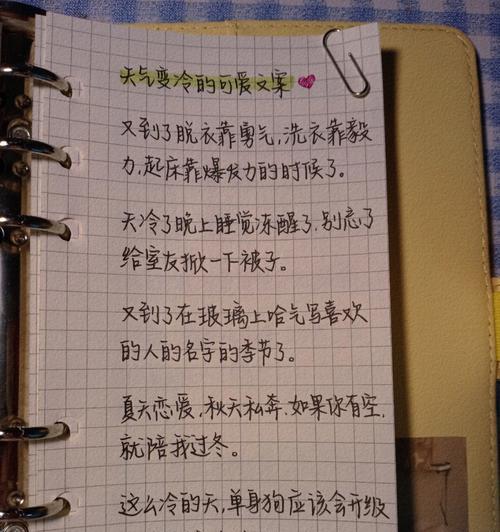 天气变冷的可爱文案
又到了脱衣靠勇气,洗衣靠毅
力,起床靠爆发力的时候了。
天冷了晚上睡觉冻醒了,别忘了
给室友掀一下被子。
又到了在玻璃上哈气写喜欢
的人的名字的季节了。
夏天恋爱,秋天私奔,如果你有空,
就陪我过冬。
这么冷的天,单身狗应该会升级